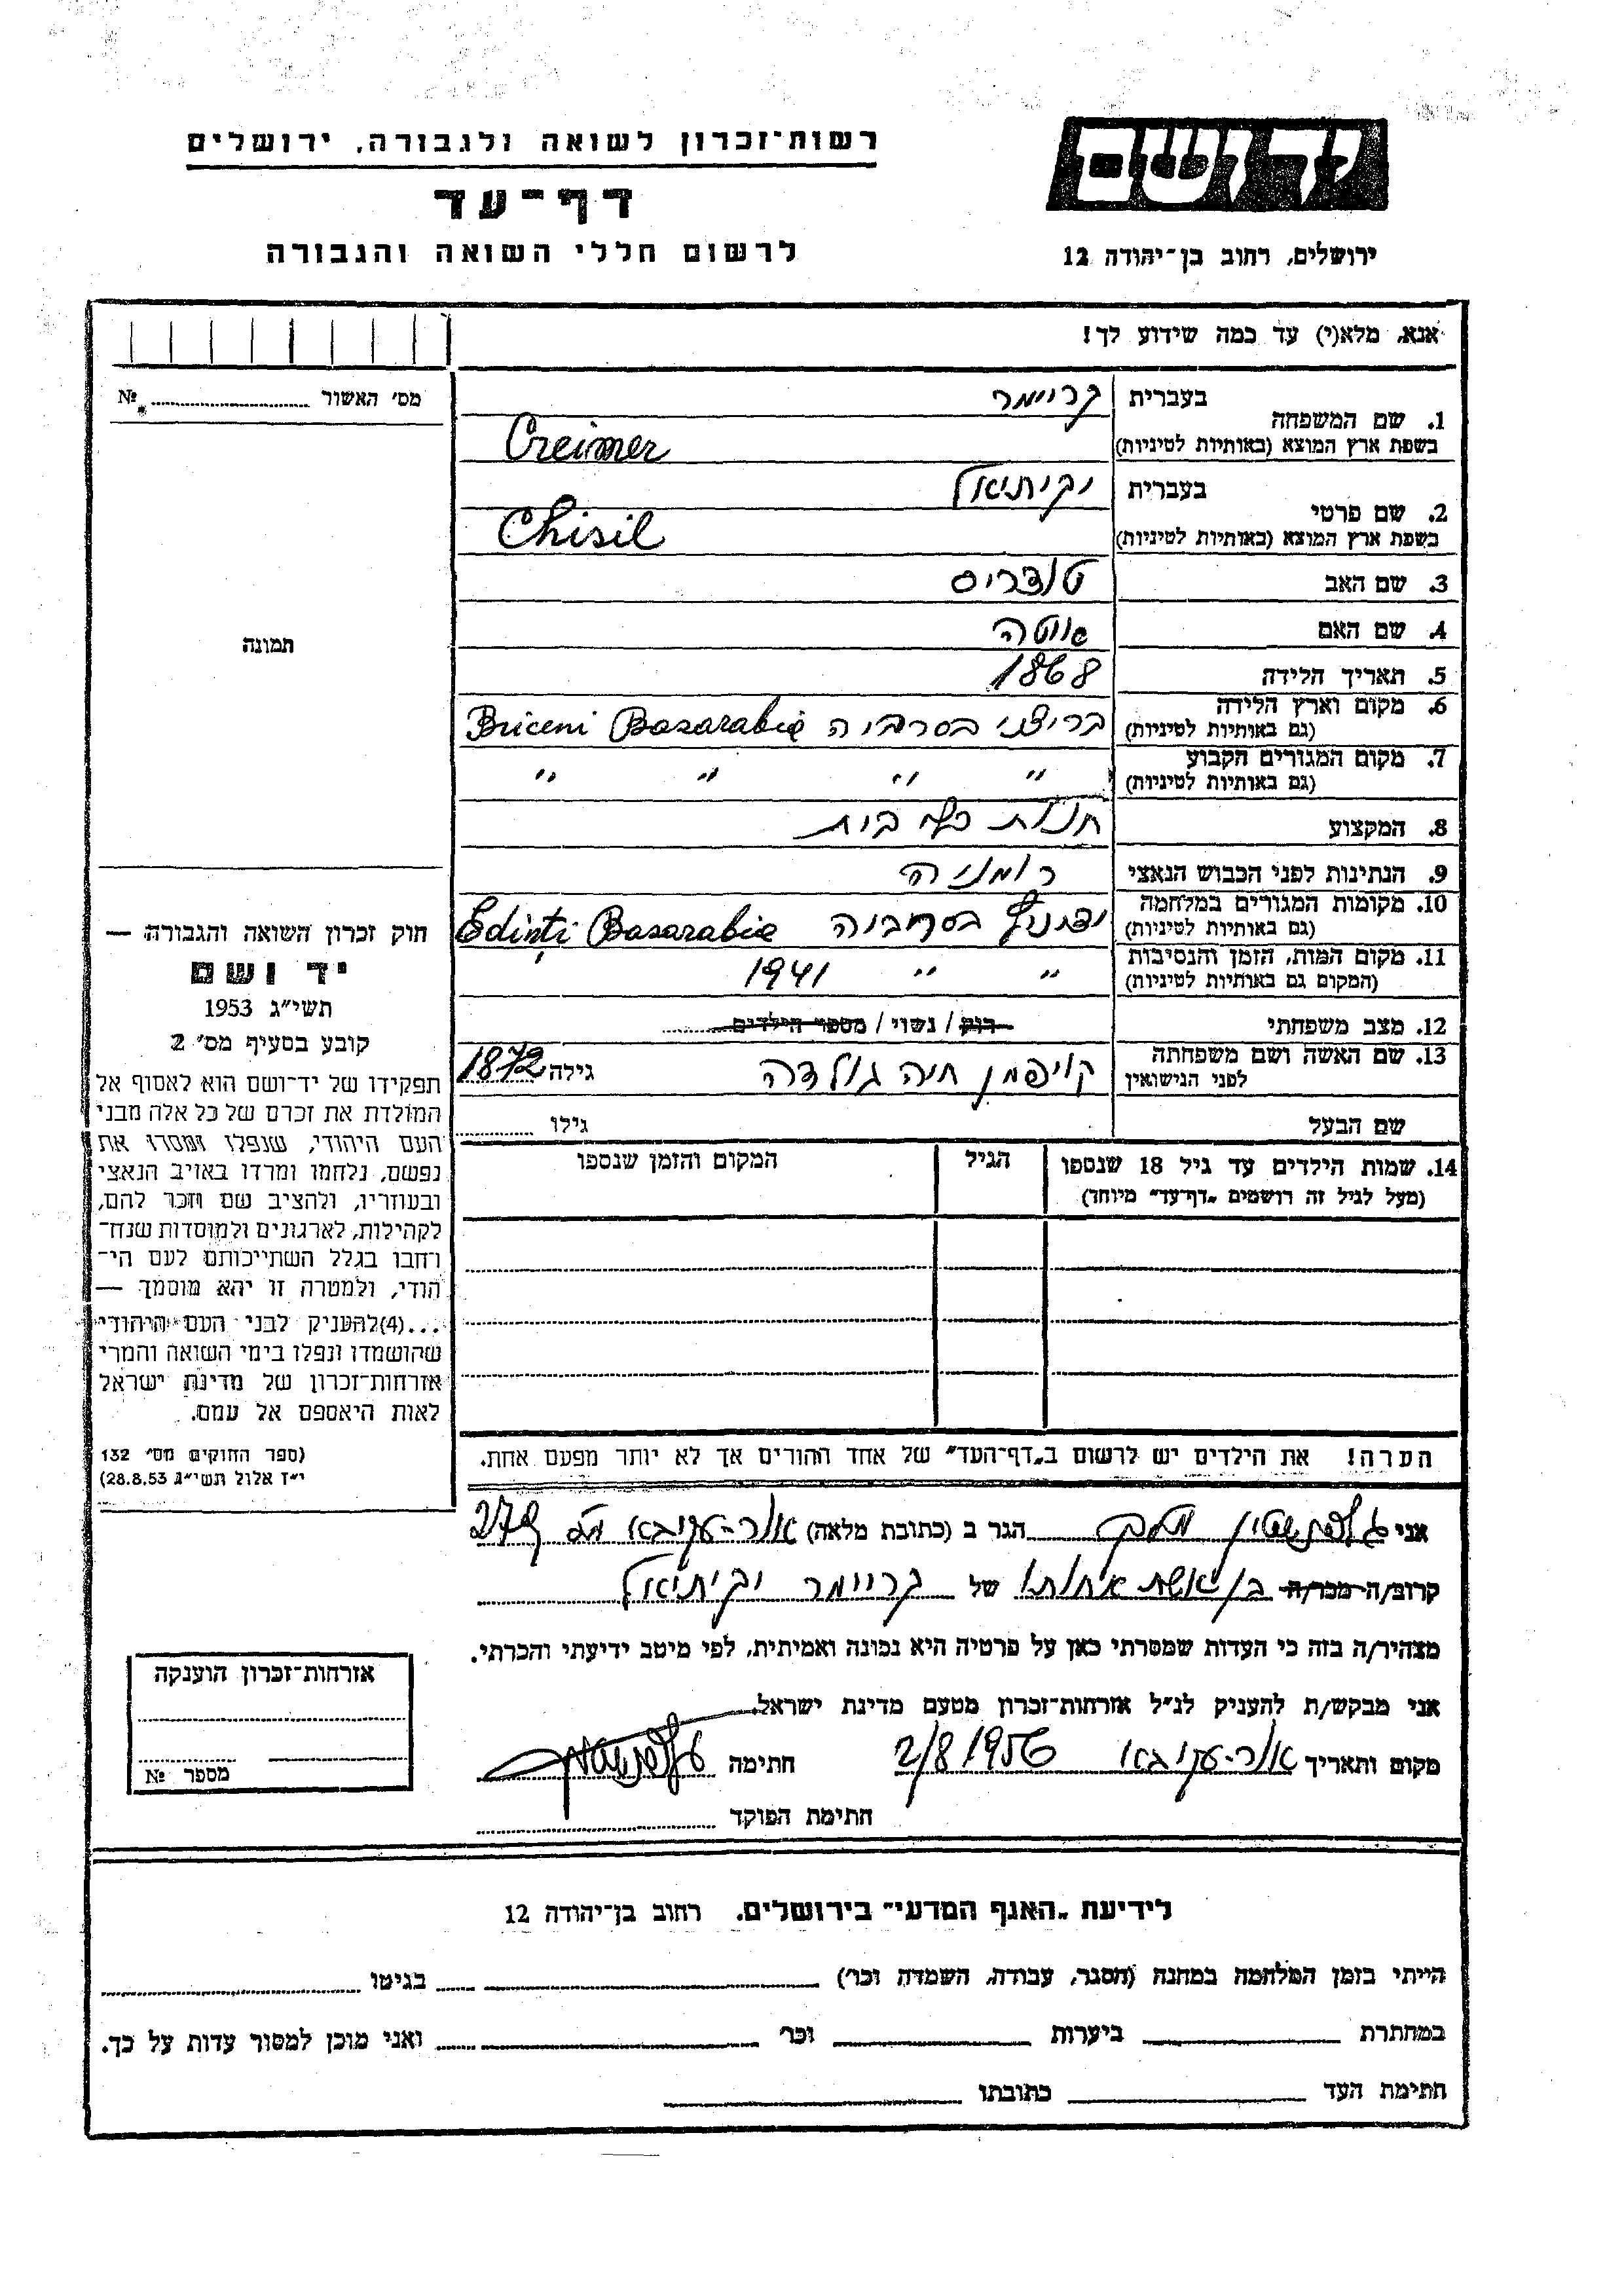 יד ושם
ירושלים, רחוב בן־יהודה 12
רשות־זכרון לשואה ולגבורה, ירושלים
דף־עד
לרשום חללי השואה והגבורה
אנא, מלא(י) עד כמה שידוע לך!
מס׳ האשור № 
תמונה
1. שם המשפחה
בעברית קריימר
בשפת ארץ המוצא (באותיות לטיניות) Creimer
2. שם פרטי
בעברית יקותיאל
בשפת ארץ המוצא (באותיות לטיניות) Chisil
3. שם האב
4. שם האם
5. תאריך הלידה 1868
6. מקום וארץ הלידה (גם באותיות לטיניות) בריצ׳ני בסרביה Briceni Basarabia
7. מקום המגורים הקבוע (גם באותיות לטיניות) " " " "
8. המקצוע חנות כלי בית
9. הנתינות לפני הכבוש הנאצי רומניה
10. מקומות המגורים במלחמה (גם באותיות לטיניות) בסרביה Edinți Basarabia
11. מקום המות, הזמן והנסיבות (המקום גם באותיות לטיניות) " " 1941
12. מצב משפחתי רוק / נשוי / מספר הילדים
13. שם האשה ושם משפחתה לפני הנישואין קויפמן חיה גולדה גילה 1872
שם הבעל גילו
14. שמות הילדים עד גיל 18 שנספו הגיל המקום והזמן שנספו
(מעל לגיל זה רושמים „דף־עד״ מיוחד)
הערה! את הילדים יש לרשום ב„דף־העד״ של אחד ההורים אך לא יותר מפעם אחת.
אני גולדשטיין הגר ב (כתובת מלאה) אור-עקיבא
קרוב/ה מכר/ה בן אשת אחותו של קריימר יקותיאל
מצהיר/ה בזה כי העדות שמסרתי כאן על פרטיה היא נכונה ואמיתית, לפי מיטב ידיעתי והכרתי.
אני מבקש/ת להעניק לנ״ל אזרחות־זכרון מטעם מדינת ישראל.
מקום ותאריך אור-עקיבא 2/8 1956 חתימה
חתימת הפוקד
חוק זכרון השואה והגבורה —
יד ושם
תשי״ג 1953
קובע בסעיף מס׳ 2
תפקידו של יד־ושם הוא לאסוף אל
המולדת את זכרם של כל אלה מבני
העם היהודי, שנפלו ומסרו את
נפשם, נלחמו ומרדו באויב הנאצי
ובעוזריו, ולהציב שם וזכר להם,
לקהילות, לארגונים ולמוסדות שנח־
רחבו בגלל השתייכותם לעם הי־
הודי, ולמטרה זו יהא מוסמך —
...(4)להעניק לבני העם היהודי
שהושמדו ונפלו בימי השואה והמרי
אזרחות־זכרון של מדינת ישראל
לאות היאספם אל עמם.
(ספר החוקים מס׳ 132
י״ז אלול תשי״ג 28.8.53)
אזרחות־זכרון הוענקה
מספר №
לידיעת „האגף המדעי״ בירושלים, רחוב בן־יהודה 12
הייתי בזמן המלחמה במחנה (הסגר, עבודה, השמדה וכר׳) בגיטו
במחתרת ביערות וכר׳ ואני מוכן למסור עדות על כך.
חתימת העד כתובתו